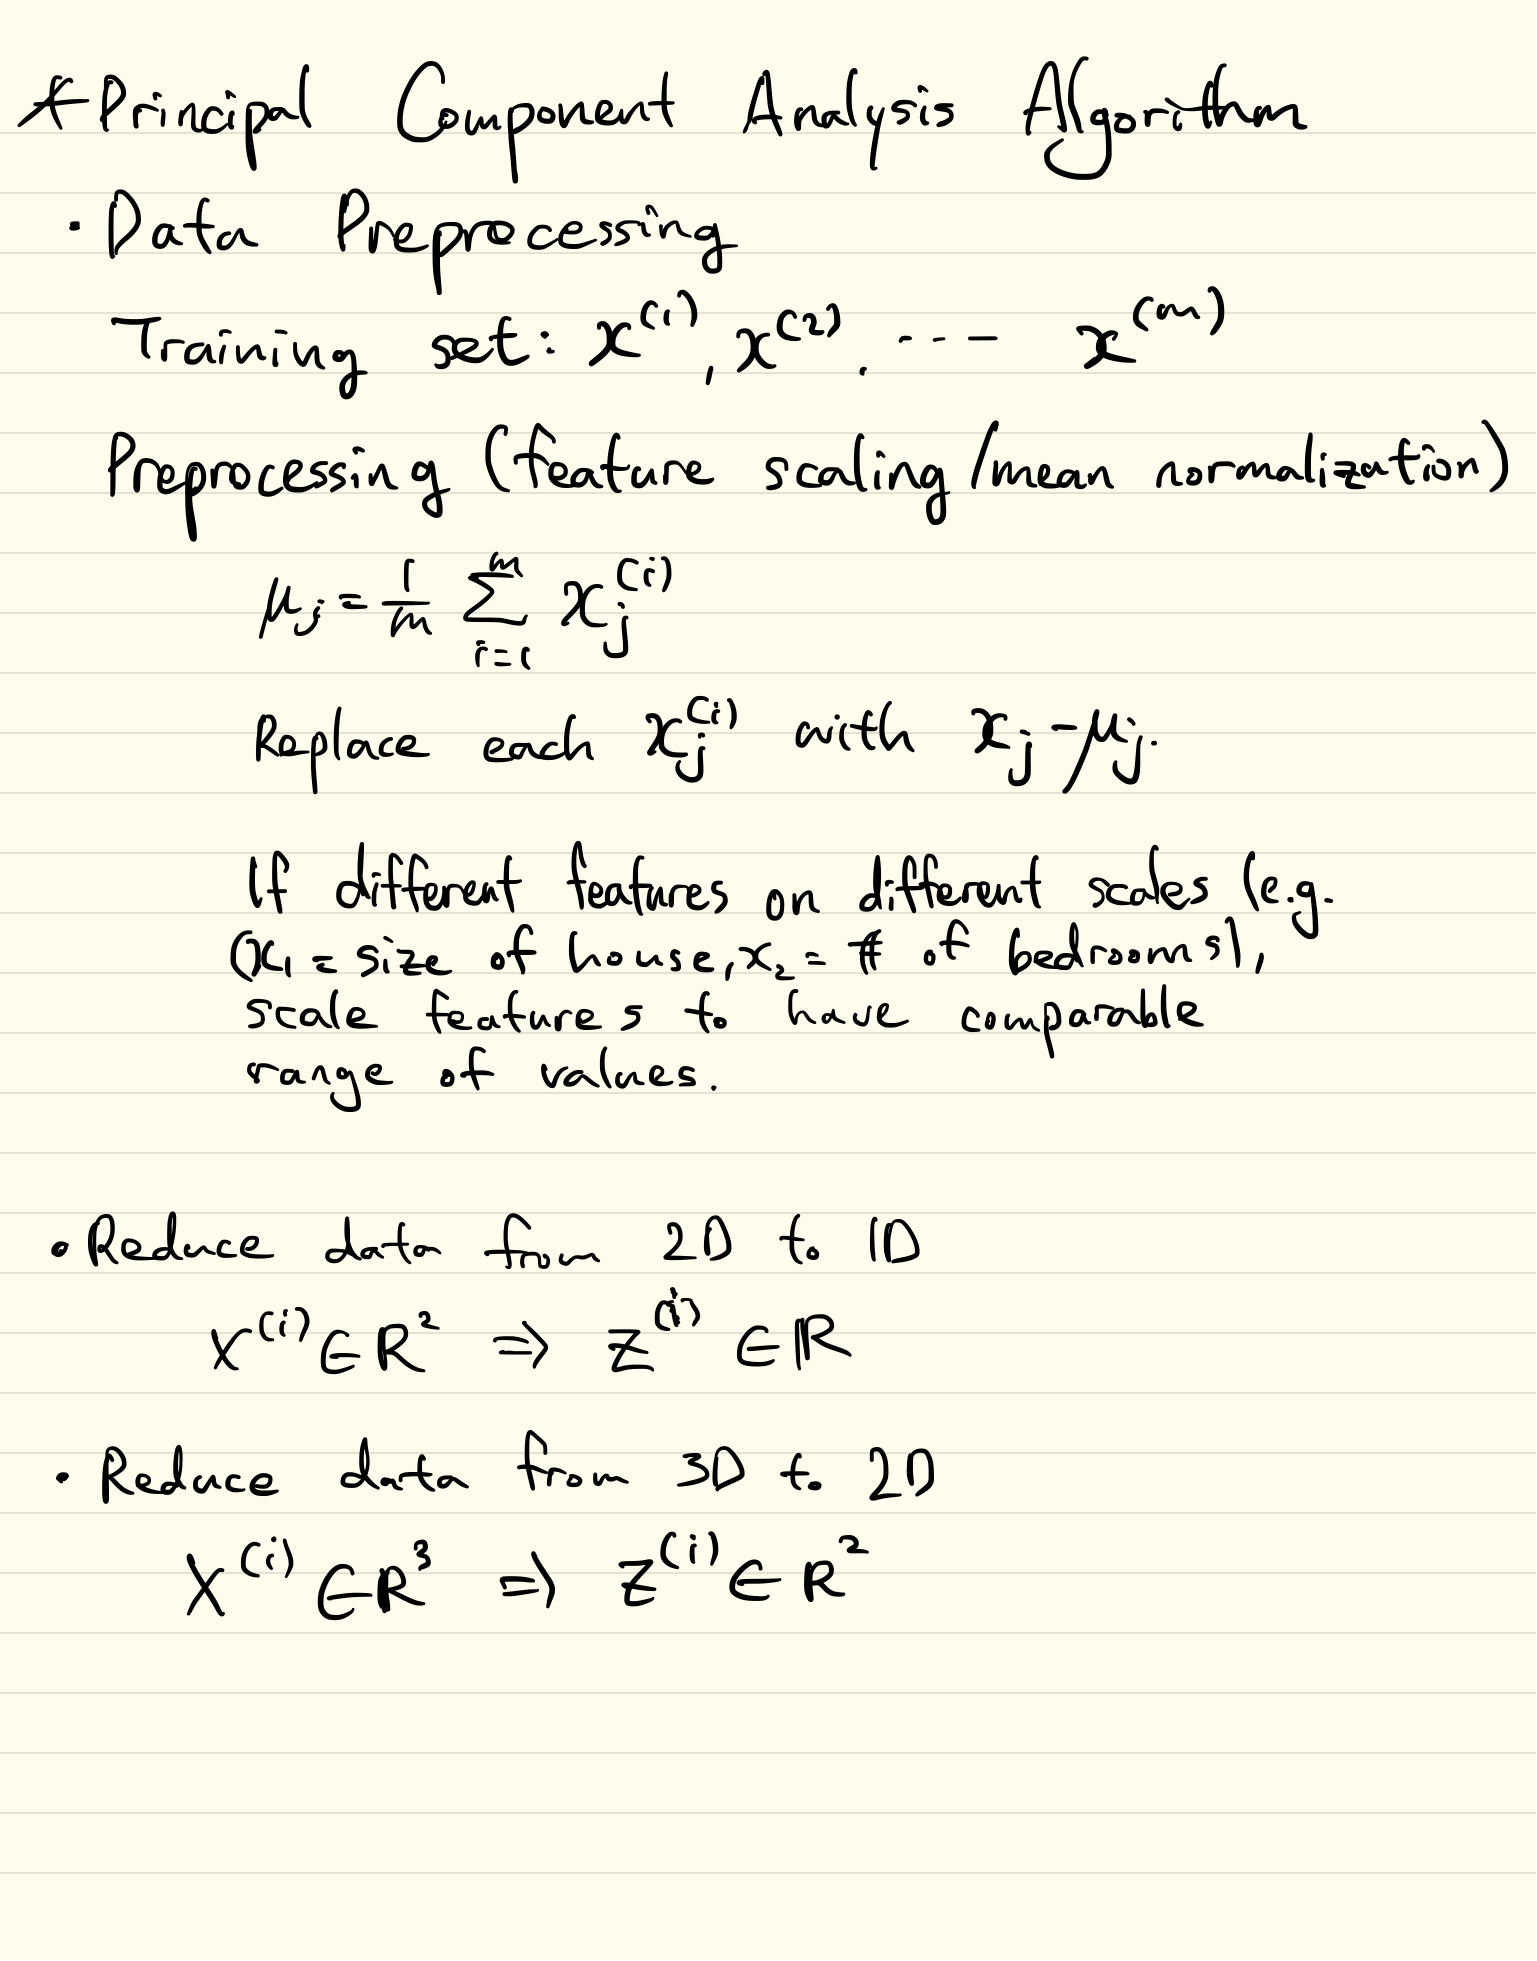 *Principal Component Analysis Algorithm
· Data Preprocessing
Training set: x⁽¹⁾, x⁽²⁾. ---- x⁽ᵐ⁾
Preprocessing (feature scaling/mean normalization)
μ_j = 1/m ∑_{i=1}^{m} x_j^{(i)}
Replace each x_j^{(i)} with x_j - μ_j.
If different features on different scales (e.g.
(x₁ = size of house, x₂ = # of bedrooms),
scale features to have comparable
range of values.
• Reduce data from 2D to 1D
x^{(i)} ∈ ℝ² ⇒ z^{(i)} ∈ ℝ
· Reduce data from 3D to 2D
x^{(i)} ∈ ℝ³ ⇒ z^{(i)} ∈ ℝ²